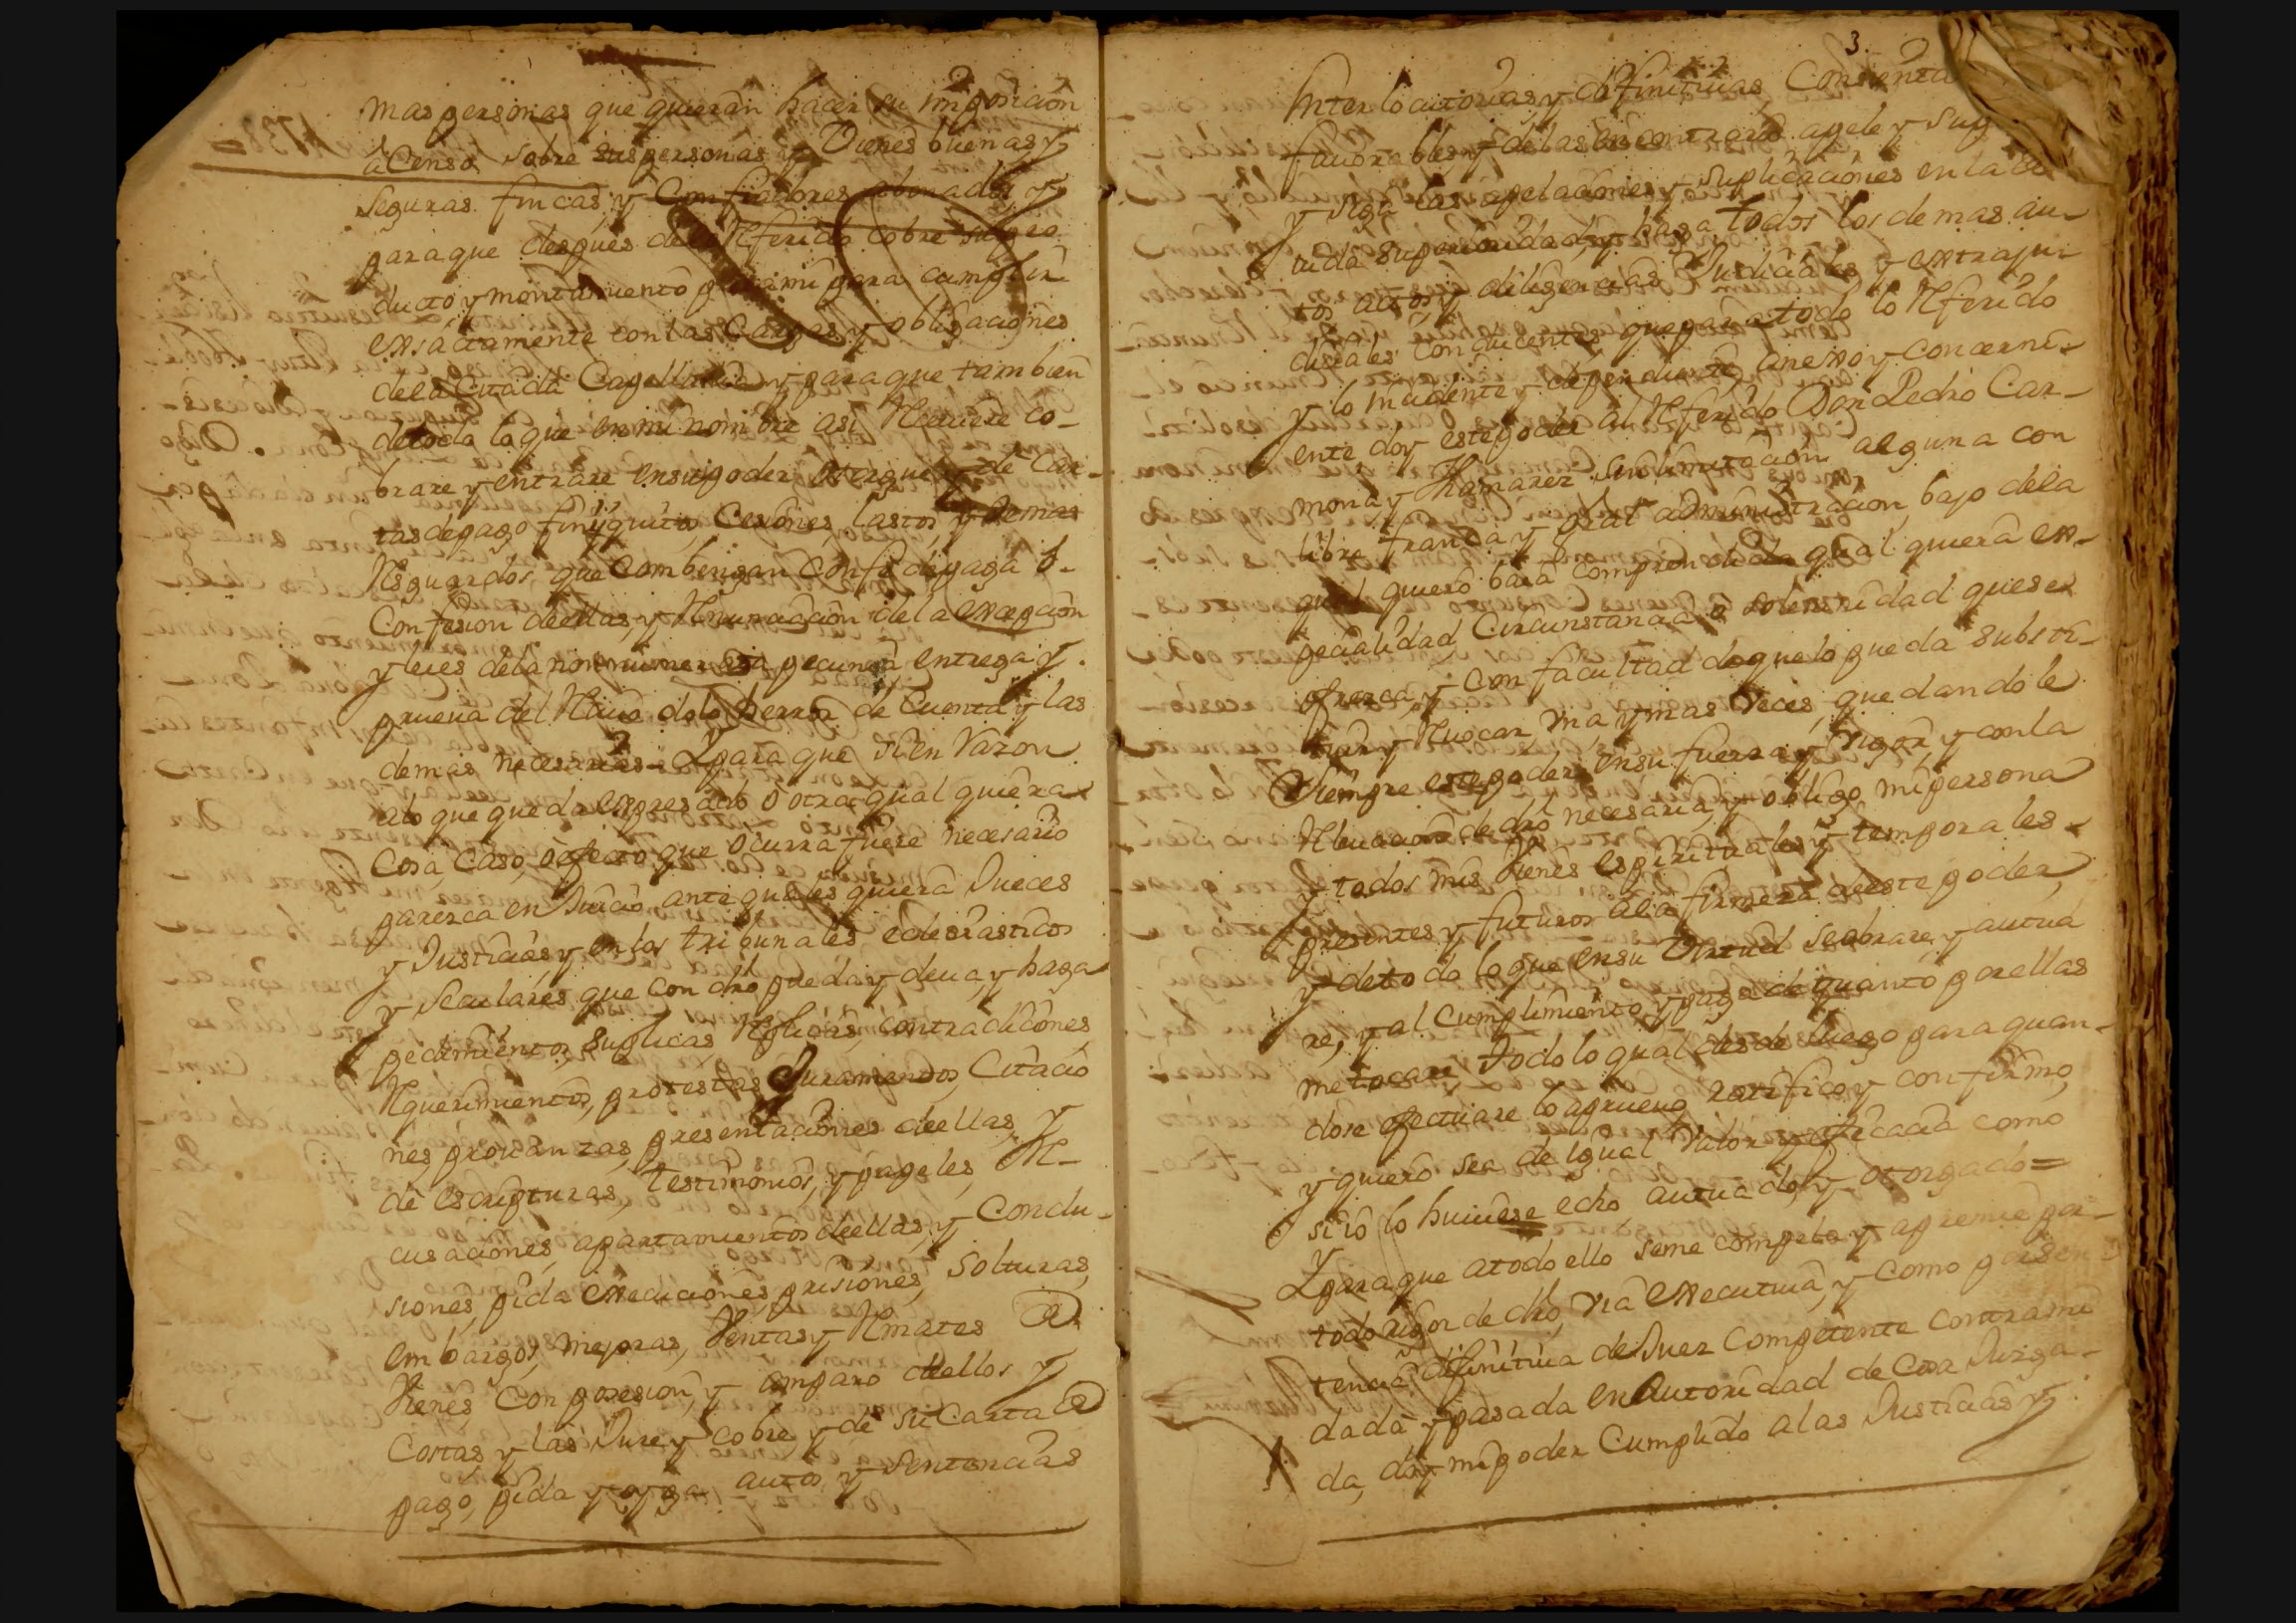 mas personas que quieran hacer su imposicion
à Censo sobre sus personas y Vienes buenas y
seguras fincas y Con fiadores abonados, y
para que despues de lo Rferido cobre su pro
ducto y montamiento para mi para cumplir
exsactamente con las Cargas y obligaciones
dela Citada Capellania y para que tambien
detodo lo que en mi nombre asi Reciviere co-
brare y entrare ensu poder otorgue y dè Car-
tas de pago finiquitos, Cesiones, lastos, y demas
Resguardos que combengan con fe de paga ò
Confesion deellas, y Renunciacion dela exsepcion
y leies dela non numerata pecunia entrega y
prueva del Reciuo dolo herror de Cuenta y las
demas necesarias = Y para que si en Razon
alo que queda expresado ò otra qual quiera
Cosa, Caso, ò efecto que ocurra fuere necesario
parezca en Juicio ante quales quiera Jueces
y Justicias y en los tribunales eclesiasticos
y Seculares que con dro pueda y deua, y haga
pedimientos, suplicas, Rplicas, contradiciones,
Requerimientos, protestas, Juramentos, Citacio
nes, provanzas, presentaciones deellas, y
de escripturas, testimonios, y papeles, Re-
cusaciones, apartamientos deellas, y Conclu-
siones, pida exsecuciones, prisiones, solturas,
embargos, mejoras, Ventas y Rmates de
Vienes Con posesion, y amparo deellos y
Costas y las Jure y cobre, y dè su Carta de
pago, pida y oyga autos y sentencias
3
Interlocutorias y difinitivas, Consienta
favorables y de las en contrario apele y sup
y siga las apelaciones y suplicaciones en la
uida superioridad, y haga todos los demas au-
tos actos y diligencias Judiciales y extraju-
diciales conducentes que para todo lo Rferido
y lo incidente y dependiente, anexso y concerni-
ente doy este poder al Rferido Don Pedro Car-
mona y Thamarez sin limitacion alguna con
libre franca y gral administracion, bajo dela
qual quiero baia comprendida qual quiera es-
pecialidad, Circunstancia ò solemnidad que se
ofrezca, y Con facultad de que lo pueda substi-
tuir y Rvocar vna y mas veces, quedandole
Siempre este poder en su fuerza y vigor, y con la
Rleuacion de dro necesaria, y obligo mi persona
y todos mis Vienes espirituales y temporales
presentes y futuros àla firmeza de este poder
y detodo lo que ensu Virtud se obrare, y autua
re, y al cumplimiento y paga de quanto por ellas
me tocare Todo lo qual desde luego para quan-
dose efectuare lo apruevo ratifico y confirmo
y quiero sea de igual Valor y eficacia como
si io lo huuiese echo autuado, y otorgado =
Y para que atodo ello seme compela y apremie por
todo rigor de dro, via exsecutiva, y como por sen
tencia difinitiua de Juez Competente contra mi
dada y pasada en autoridad de Cosa Juzga-
da, doy mi poder Cumplido alas Justicias y